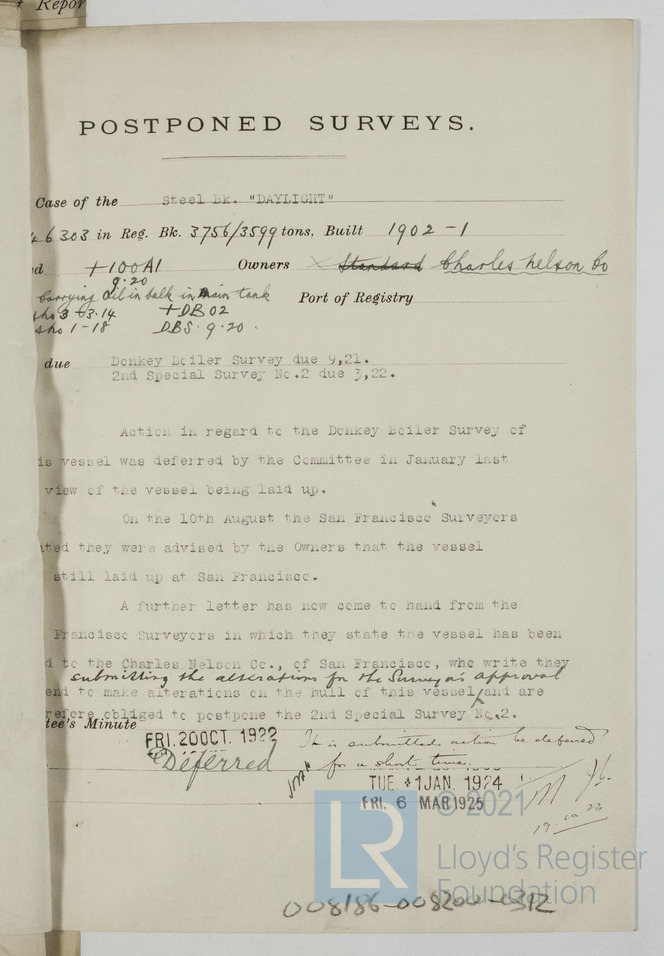 + Repor
POSTPONED SURVEYS.
Case of the Steel Bk. "DAYLIGHT"
46303 in Reg. Bk. 3756/3599 tons, Built 1902-1
ed +100A1 Owners Standard Charles Nelson Co
9.20
Carrying Oil in bulk in main tank Port of Registry
sho 3-3.14 +DB02
sho 1-18 DBS. 9.20.
due Donkey Boiler Survey due 9,21.
2nd Special Survey No.2 due 3,22.
Action in regard to the Donkey Boiler Survey of
is vessel was deferred by the Committee in January last
view of the vessel being laid up.
On the 10th August the San Francisco Surveyors
ted they were advised by the Owners that the vessel
still laid up at San Francisco.
A further letter has now come to hand from the
Francisco Surveyors in which they state the vessel has been
d to the Charles Nelson Co., of San Francisco, who write they
submitting the alterations for the Surveyors approval
end to make alterations on the hull of this vessel and are
refore obliged to postpone the 2nd Special Survey No.2.
tee's Minute
FRI. 20 OCT. 1922 It is submitted action be deferred
Deferred for a short time.
TUE. 1 JAN. 1924
FRI. 6 MAR 1925
19.10.22
© 2021
LR
Lloyd's Register
Foundation
008186-008200-0312